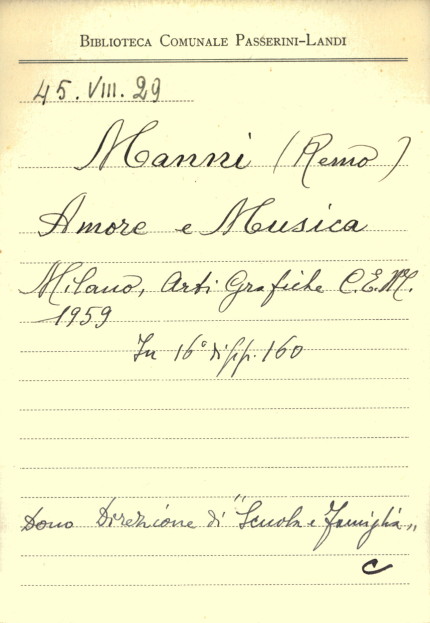 BIBLIOTECA COMUNALE PASSERINI-LANDI
45. VIII. 29
Manni (Remo)
Amore e Musica
Milano, Arti Grafiche C.E.M.
1959
In 16° di pp. 160
Dono Direzione di "Scuola e Famiglia„
C